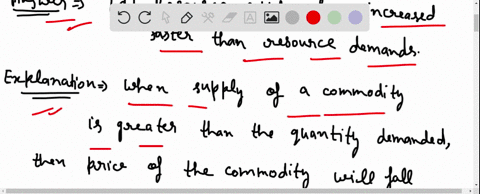 increased
faster than resource demands.
Explanation⇒ when supply of a commodity
is greater than the quantity demanded,
then price of the commodity will fall